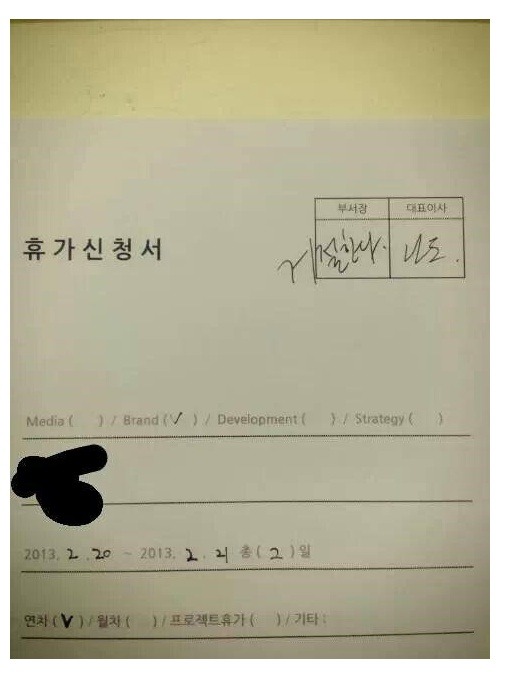 부서장 대표이사
휴가신청서
거절한다. 나도.
Media ( ) / Brand (✓) / Development ( ) / Strategy ( )
2013. 2. 20 ~ 2013. 2. 21 총 ( 2 ) 일
연차 (V) / 월차 ( ) / 프로젝트휴가 ( ) / 기타 :